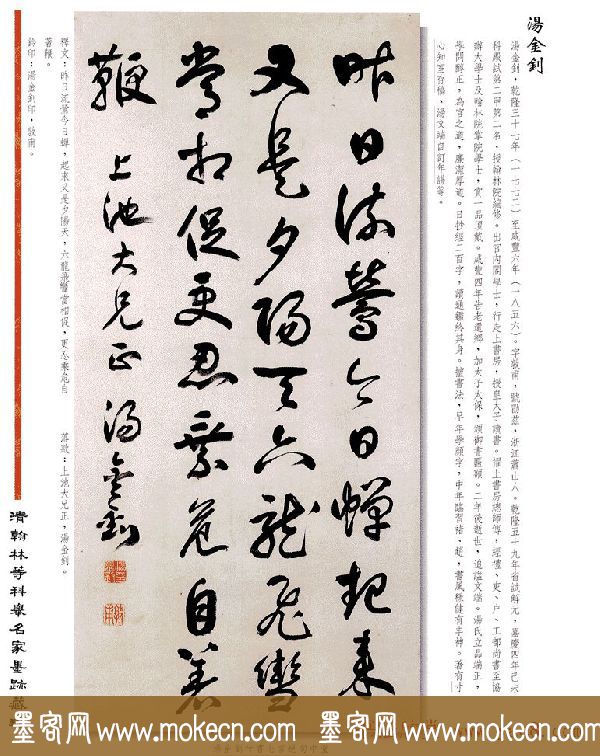 湯金釗
湯金釗,乾隆三十七年(一七七二)至咸豐六年(一八五六)。字敦甫,號勖茲,浙江蕭山人。乾隆五十九年省試解元,嘉慶四年己未
科殿試第二甲第二名,授翰林院編修。出官內閣學士,行走上書房,授皇太子讀書。擢上書房總師傅,經禮、吏、戶、工部尚書至協
辦大學士及翰林院掌院學士,賞一品頂戴。咸豐四年告老還鄉,加太子太保,頒御書匾額。二年後逝世,追謚文端。湯氏立品端正,
學問醇正,為官之道,廉潔厚道。日抄經二百字,讀通鑑終其身。擅書法,早年學顏字,中年臨習褚、趙,書風穩健有丰神。著有寸
心知室存稿,湯文端自訂年譜等。
昨日流鶯今日蟬起來
又是夕陽天六龍飛轡
常相促更忍乘危自著
鞭 上池大兄正 湯金釗
釋文:昨日流鶯今日蟬,起來又是夕陽天,六龍飛轡當相促,更忍乘危自
著鞭。 落款:上池大兄正,湯金釗。
鈐印:湯金釗印,敦甫。
清翰林等科舉名家墨跡藏
墨客网 www.mokecn.com 墨客网 www.mokecn.com
湯金釗行書七言絕句中堂